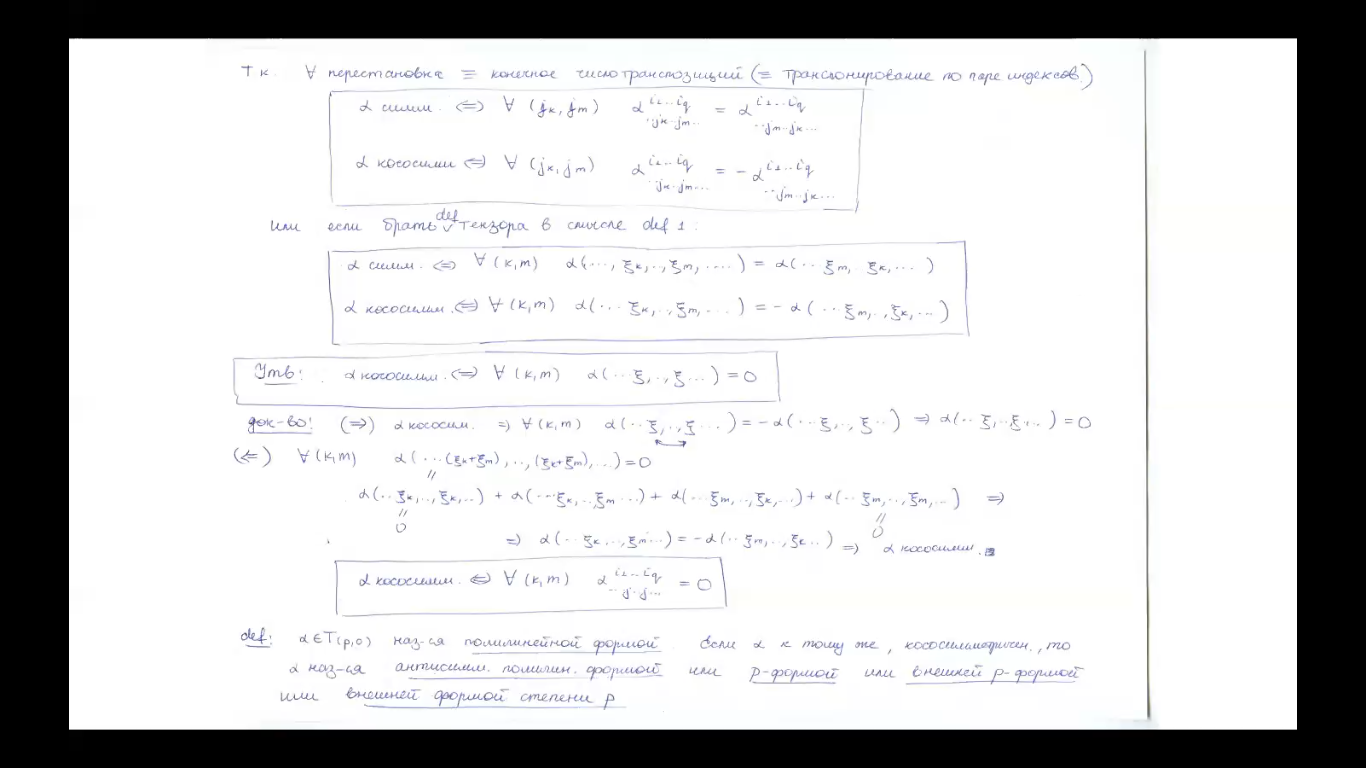 Т.к. ∀ перестановка ≡ конечное число транспозиций (≡ транспонирование по паре индексов.)
α симм. ⇔ ∀ (jₖ, jₘ) α^{i₁...i_q}_{..jₖ..jₘ..} = α^{i₁...i_q}_{..jₘ..jₖ...}
α кососимм ⇔ ∀ (jₖ, jₘ) α^{i₁...i_q}_{..jₖ..jₘ...} = - α^{i₁...i_q}_{..jₘ..jₖ...}
Или если брать def тензора в смысле def 1:
α симм. ⇔ ∀ (k,m) α(..., ξₖ,.., ξₘ, ....) = α(.. ξₘ, ξₖ,...)
α кососимм. ⇔ ∀ (k,m) α(... ξₖ,.., ξₘ, ...) = - α(.. ξₘ,.., ξₖ, ...)
Утв: α кососимм. ⇔ ∀ (k,m) α(... ξ,.., ξ...) = 0
док-во: (⇒) α кососим. ⇒ ∀ (k,m) α(.. ξ,.., ξ...) = - α(.. ξ,.., ξ..) ⇒ α(.. ξ,.., ξ...) = 0
(⇐) ∀ (k,m) α(...(ξₖ+ξₘ),..,(ξₖ+ξₘ),...) = 0
||
α(.. ξₖ,.., ξₖ,...) + α(... ξₖ,.., ξₘ ...) + α(... ξₘ,.., ξₖ,...) + α(.. ξₘ,.., ξₘ,...) ⇒
|| ||
0 0
⇒ α(.. ξₖ,.., ξₘ...) = - α(.. ξₘ,.., ξₖ..) ⇒ α кососимм.
α кососимм. ⇔ ∀ (k,m) α^{i₁...i_q}_{..j..j...} = 0
def: α ∈ T(p,0) наз-ся полилинейной формой. Если α к тому же, кососимметричен., то
α наз-ся антисимм. полилин. формой или p-формой или внешней p-формой
или внешней формой степени p